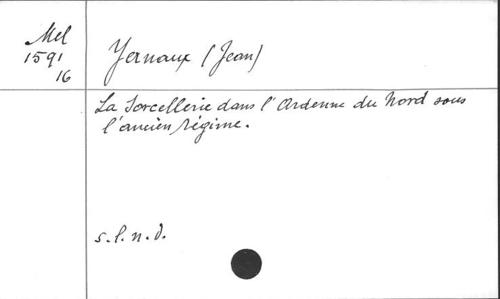 Mel
1591
16
Yernaux (Jean)
La Sorcellerie dans l'Ardenne du Nord sous
l'ancien régime.
s.l.n.d.